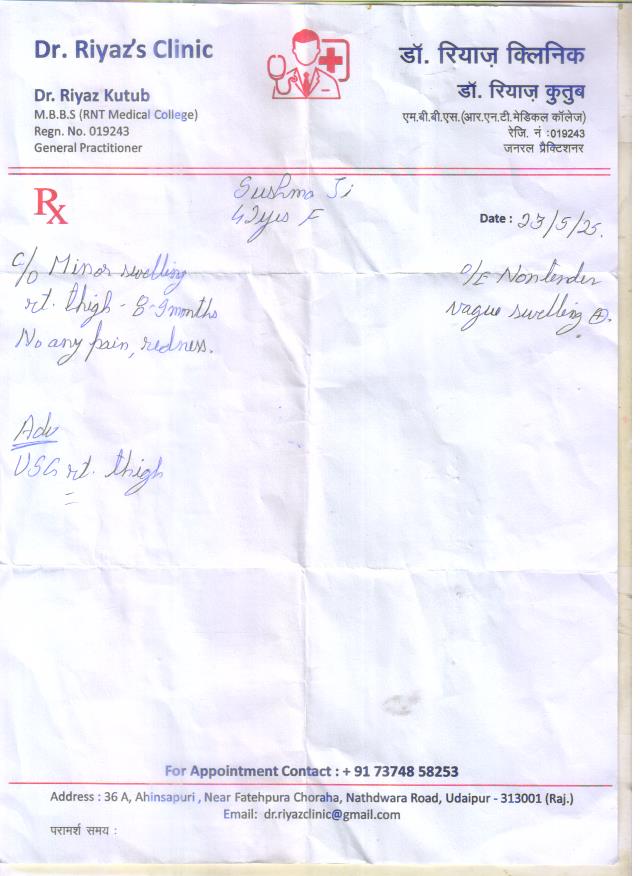 Dr. Riyaz's Clinic
Dr. Riyaz Kutub
M.B.B.S (RNT Medical College)
Regn. No. 019243
General Practitioner
डॉ. रियाज़ क्लिनिक
डॉ. रियाज़ कुतुब
एम.बी.बी.एस.(आर.एन.टी.मेडिकल कॉलेज)
रेजि. नं :019243
जनरल प्रैक्टिशनर
Rx
Sushma Ji
42yrs F
Date : 23/5/25.
C/O Minor swelling
rt. thigh - 8-9 months
No any pain, redness.
O/E Nontender
vague swelling ⊕.
Adv
USG rt. thigh
For Appointment Contact : + 91 73748 58253
Address : 36 A, Ahinsapuri , Near Fatehpura Choraha, Nathdwara Road, Udaipur - 313001 (Raj.)
Email: dr.riyazclinic@gmail.com
परामर्श समय :